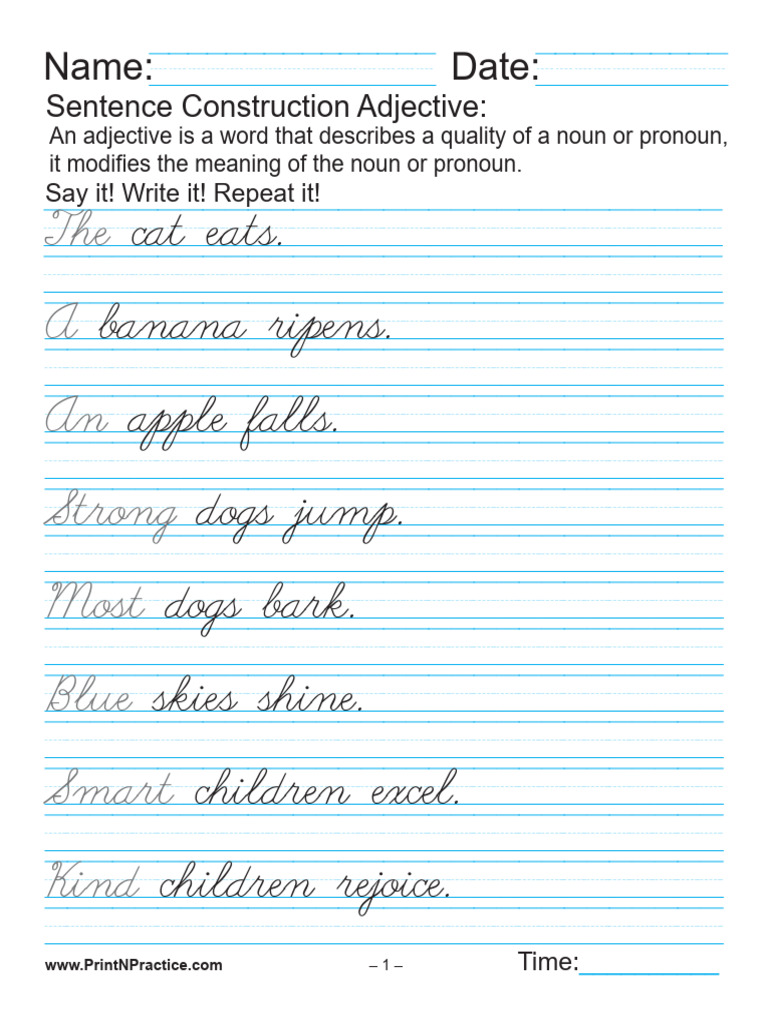 Name: Date:
Sentence Construction Adjective:
An adjective is a word that describes a quality of a noun or pronoun,
it modifies the meaning of the noun or pronoun.
Say it! Write it! Repeat it!
The cat eats.
A banana ripens.
An apple falls.
Strong dogs jump.
Most dogs bark.
Blue skies shine.
Smart children excel.
Kind children rejoice.
www.PrintNPractice.com – 1 – Time: